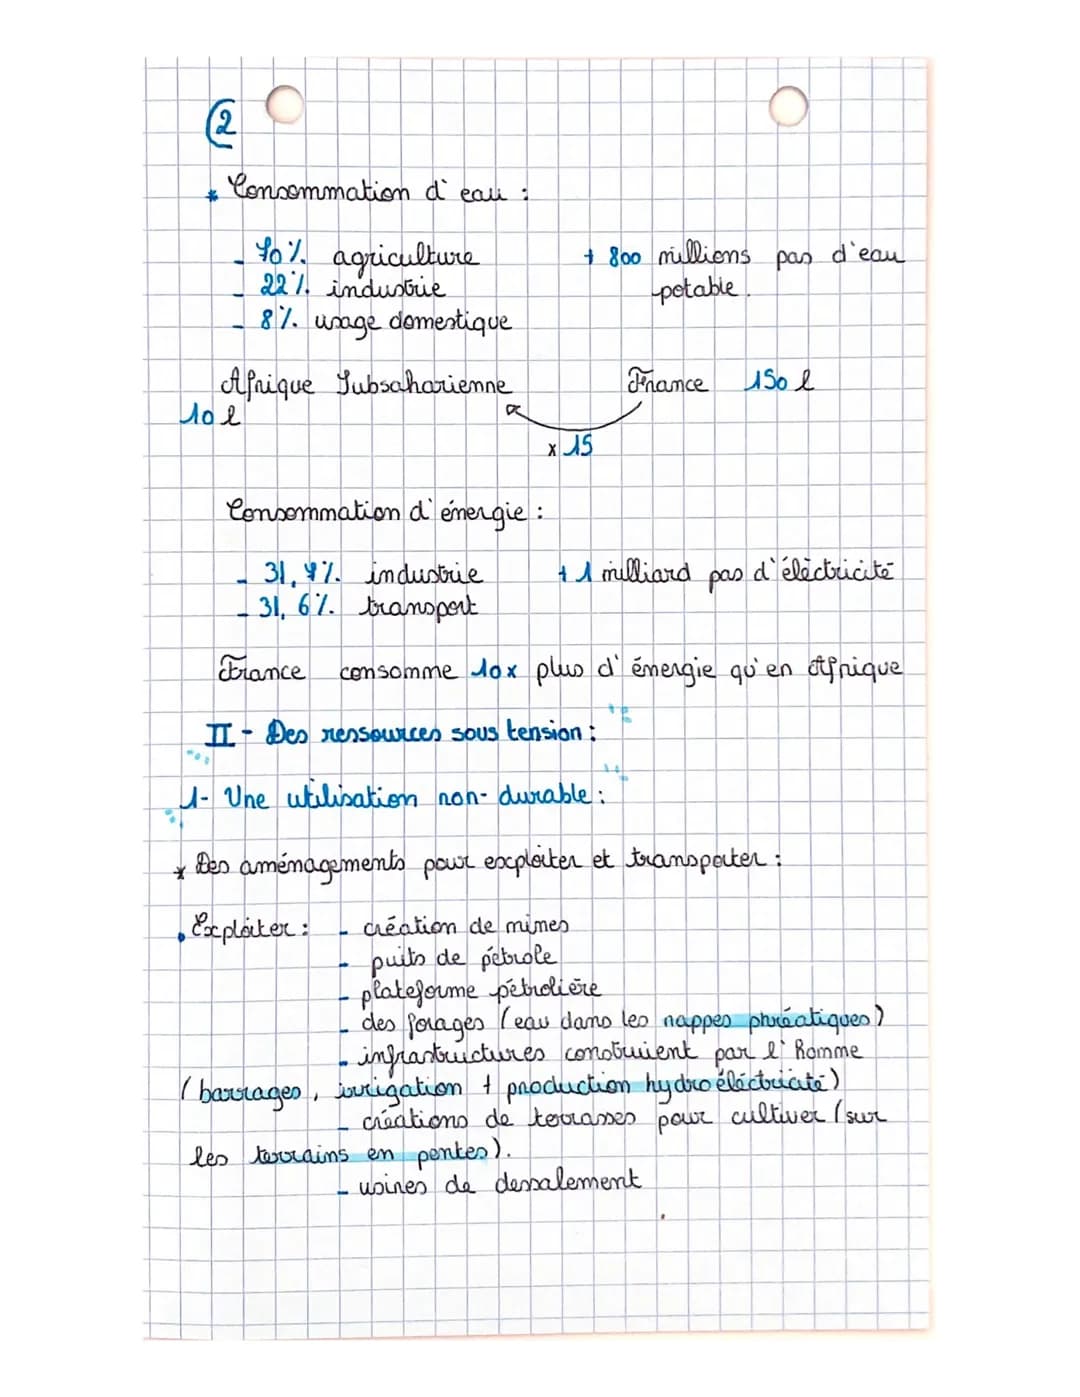 2
* Consommation d'eau :
- 70% agriculture + 800 millions pas d'eau
- 22% industrie potable.
- 8% usage domestique
Afrique Subsaharienne France 150 l
10 l
x 15
Consommation d'énergie :
- 31,7% industrie + 1 milliard pas d'éléctricité
- 31,6% transport
France consomme 10x plus d'énergie qu'en Afrique
II - Des ressources sous tension :
1- Une utilisation non-durable :
* Des aménagements pour exploiter et transporter :
• Exploiter : - création de mines
- puits de pétrole
- plateforme pétrolière
- des forages (eau dans les nappes phréatiques)
- infrastructures construient par l'Homme
(barrages, irrigation + production hydroéléctricité)
- créations de terrasses pour cultiver (sur
les terrains en pentes).
- usines de dessalement